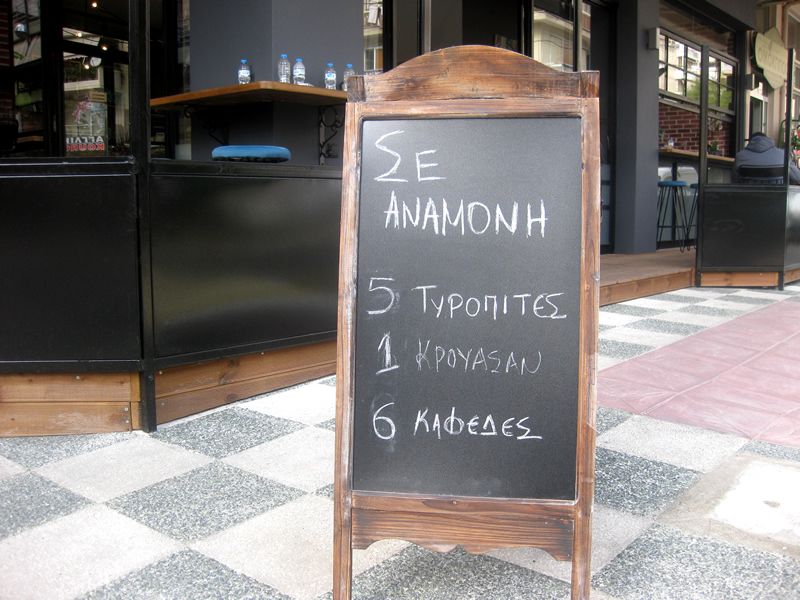 ΣΕ
ΑΝΑΜΟΝΗ
5 ΤΥΡΟΠΙΤΕΣ
1 ΚΡΟΥΑΣΑΝ
6 ΚΑΦΕΔΕΣ